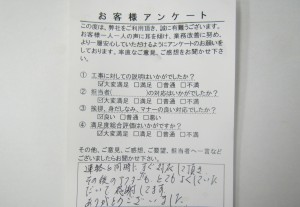 お客様アンケート
この度は、弊社をご利用頂き、誠に有難うございます。
お客様一人一人の声に耳を傾け、業務改善に努め、
より一層安心していただけるようにアンケートのお願いを
しております。率直なご意見、ご感想をお聞かせ下
さい。
① 工事に対しての説明はいかがでしたか?
☑大変満足 □満足 □普通 □不満
② 担当者( )の対応はいかがでしたか?
☑大変満足 □満足 □普通 □不満
③ 挨拶、身だしなみ、マナーの良い対応でしたか?
☑良い □普通 □悪い
④ 満足度総合評価はいかがですか?
☑大変満足 □満足 □普通 □不満
その他、ご意見、ご感想、ご要望、担当者へ一言など
ございましたらお聞かせ下さい。
連絡と同時に すぐ 頂き
その後のアフターも とても よくしていた
だいて 感謝してます。
ありがとうございました